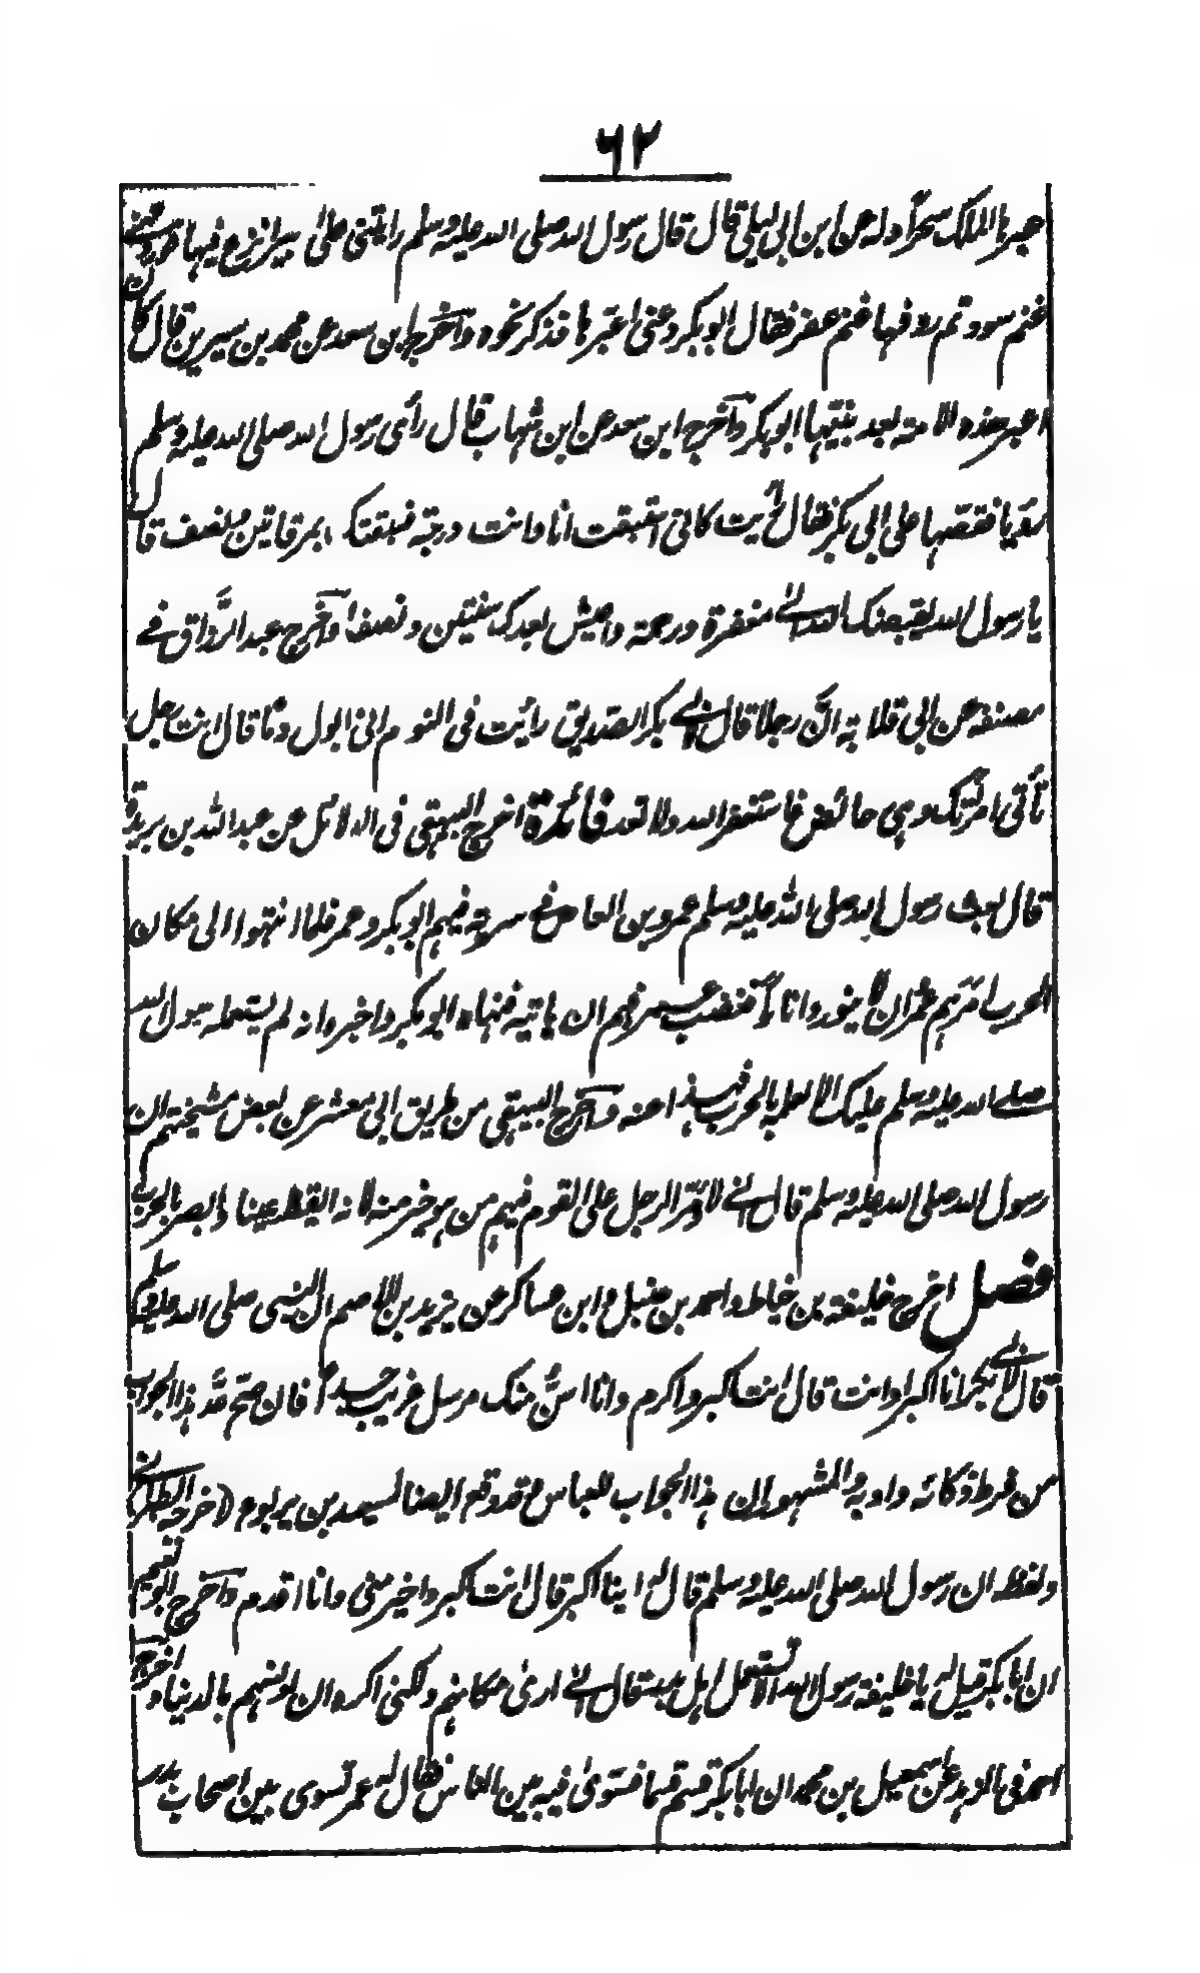 ٦٢
عبرها الملك سحراً وله عن ابن ابي ليلى قال قال رسول الله صلى الله عليه وسلم رايتني على بير انزع فيها فوردتني
غنم سود ثم ردفها غنم عفر فقال ابو بكر دعني اعبرها فذكر نحوه واخرج ابن سعد عن محمد بن سيرين قال كان
اعبر هذه الامة بعد نبيها ابو بكر واخرج ابن سعد عن ابن شهاب قال رأى رسول الله صلى الله عليه وسلم
رؤيا فقصها على ابي بكر فقال رأيت كاني استبقت انا وانت درجة فسبقتك بمرقاتين ونصف قال
يا رسول الله يقبضك الله الى مغفرة ورحمة واعيش بعدك سنتين ونصفا واخرج عبد الرزاق في
مصنفه عن ابي قلابة ان رجلا قال لابي بكر الصديق رايت في النوم اني ابول دما قال انت رجل
تأتي امرأتك وهي حائض فاستغفر الله ولا تعد فائدة اخرج البيهقي في الدلائل عن عبد الله بن بريدة
قال بعث رسول الله صلى الله عليه وسلم عمرو بن العاص في سرية فيهم ابو بكر وعمر فلما انتهوا الى مكان
الحرب امرهم عمرو ان لا ينوروا نارا فغضب عمر فهم ان ياتيه فنهاه ابو بكر واخبره انه لم يستعمله رسول الله
صلى الله عليه وسلم عليك الا لعلمه بالحرب فهدأ عنه واخرج البيهقي من طريق ابي معشر عن بعض مشيختهم ان
رسول الله صلى الله عليه وسلم قال اني لاؤمر الرجل على القوم فيهم من هو خير منه لانه ايقظ عينا وابصر بالحرب
فصل اخرج خليفة بن خياط واحمد بن حنبل وابن عساكر عن يزيد بن الاصم ان النبي صلى الله عليه وسلم
قال لابي بكر انا اكبر او انت قال انت اكبر واكرم وانا اسن منك مرسل غريب جدا فان صح عُد هذا الجواب
من فرط ذكائه وادبه والمشهور ان هذا الجواب للعباس وقد وقع ايضا لسعيد بن يربوع اخرجه الطبراني
ولفظه ان رسول الله صلى الله عليه وسلم قال له اينا اكبر قال انت اكبر واخير مني وانا اقدم واخرج ابو نعيم
ان ابا بكر قيل له يا خليفة رسول الله الا تستعمل اهل بدر قال اني ارى مكانهم ولكني اكره ان ادنسهم بالدنيا واخرج
احمد في الزهد عن اسمعيل بن محمد ان ابا بكر قسم قسما فسوى فيه بين الناس فقال له عمر تسوي بين اصحاب بدر